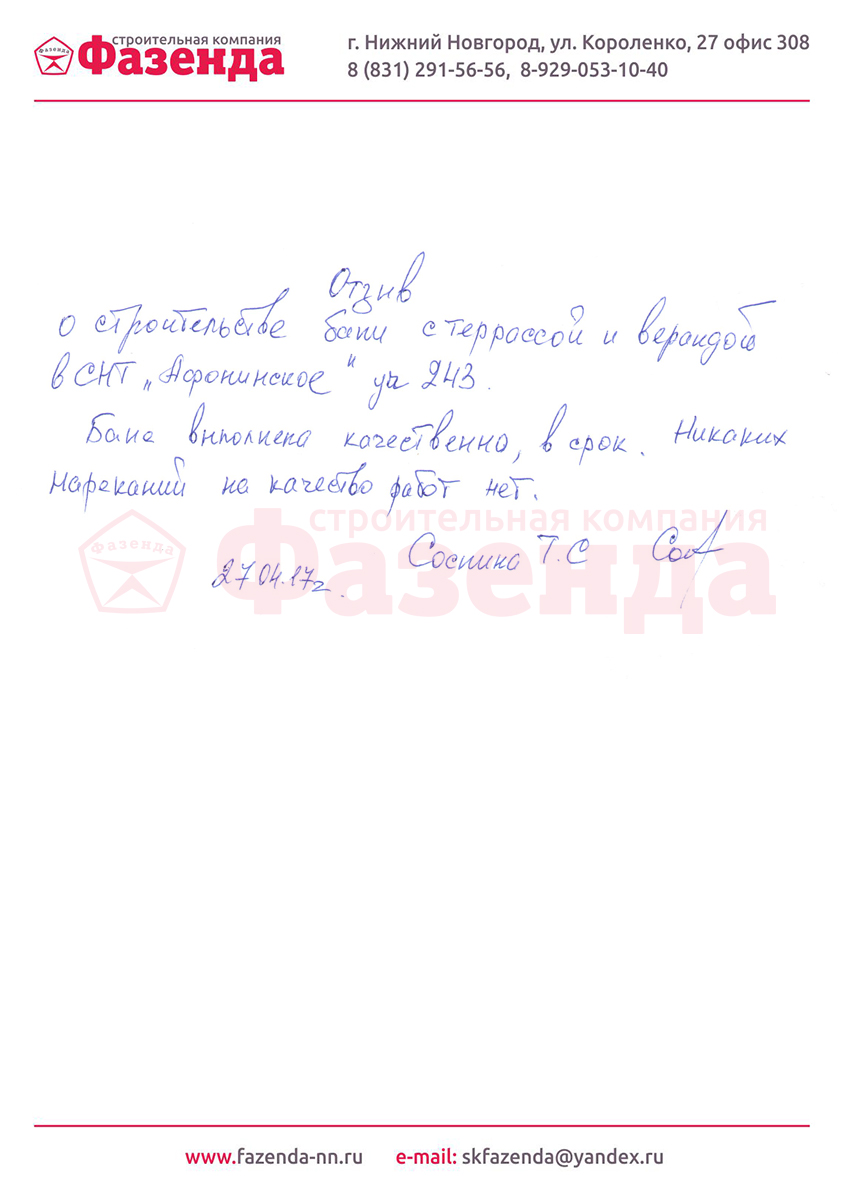 строительная компания
Фазенда
Фазенда
г. Нижний Новгород, ул. Короленко, 27 офис 308
8 (831) 291-56-56, 8-929-053-10-40
Отзыв
о строительстве бани с террассой и верандой
в СНТ „Афонинское" уч 243.
Баня выполнена качественно, в срок. Никаких
нареканий на качество работ нет.
строительная компания
Фазенда
Фазенда
Соснина Т.С
27.04.17г.
www.fazenda-nn.ru e-mail: skfazenda@yandex.ru